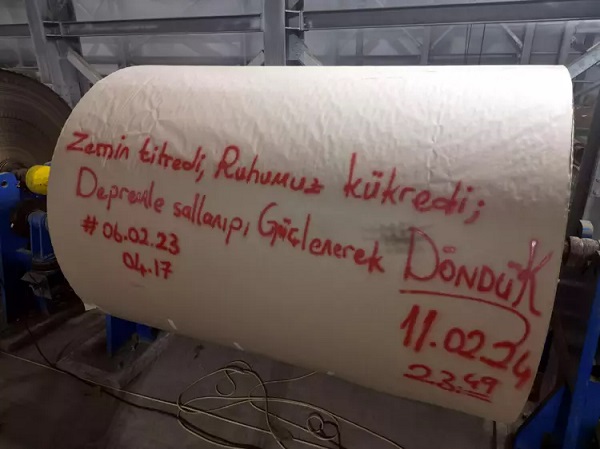 Zemin titredi, Ruhumuz kükredi;
Depremle sallanıp, Güçlenerek DÖNDÜK
#06.02.23
04.17
11.02.24
23.49